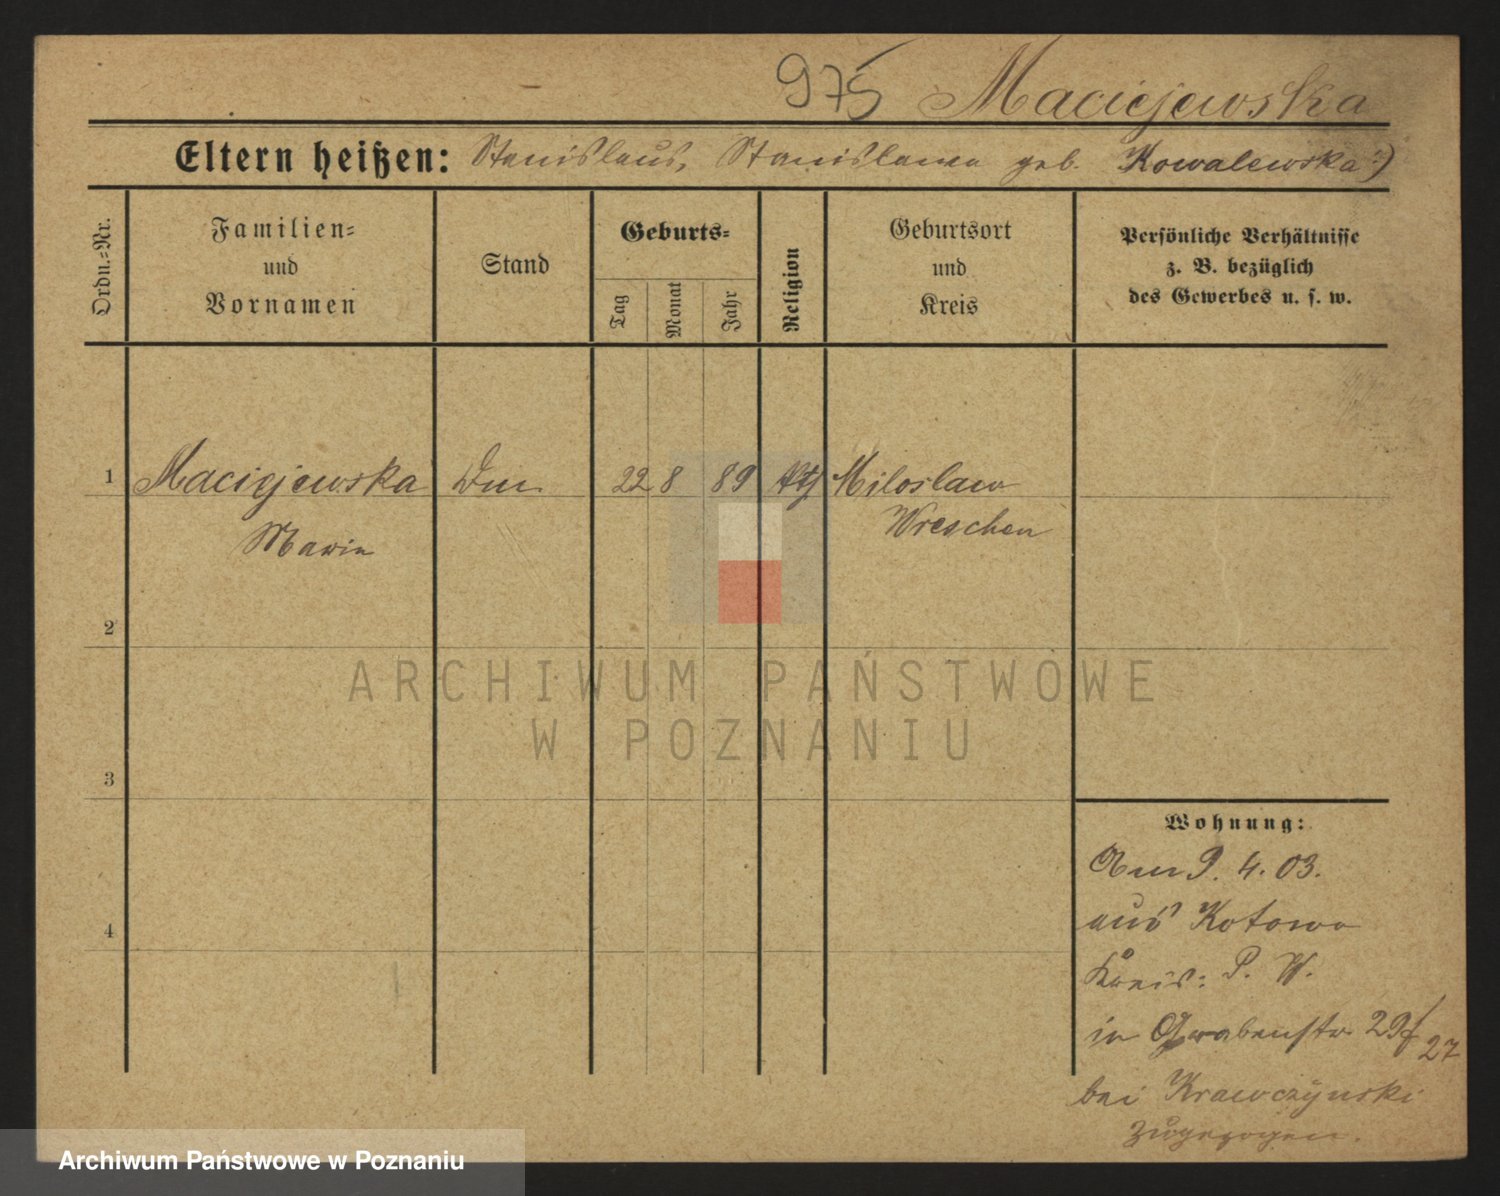 975 Maciejewska
Eltern heißen: Stanislaus, Stanislawa geb. Kowalewska :)
Ordn.-Nr.
Familien-
und
Vornamen
Stand
Geburts-
Tag
Monat
Jahr
Religion
Geburtsort
und
Kreis
Persönliche Verhältnisse
z. B. bezüglich
des Gewerbes u. s. w.
1 Maciejewska 22 8 89 kth Miloslaw
Maria Wreschen
2
ARCHIWUM PAŃSTWOWE
W POZNANIU
3
Wohnung:
Am 9. 4. 03.
aus Kotowo
4
Kreis: P. W.
in Grabenstr 29/
27
bei Krawczynski
zugezogen.
Archiwum Państwowe w Poznaniu